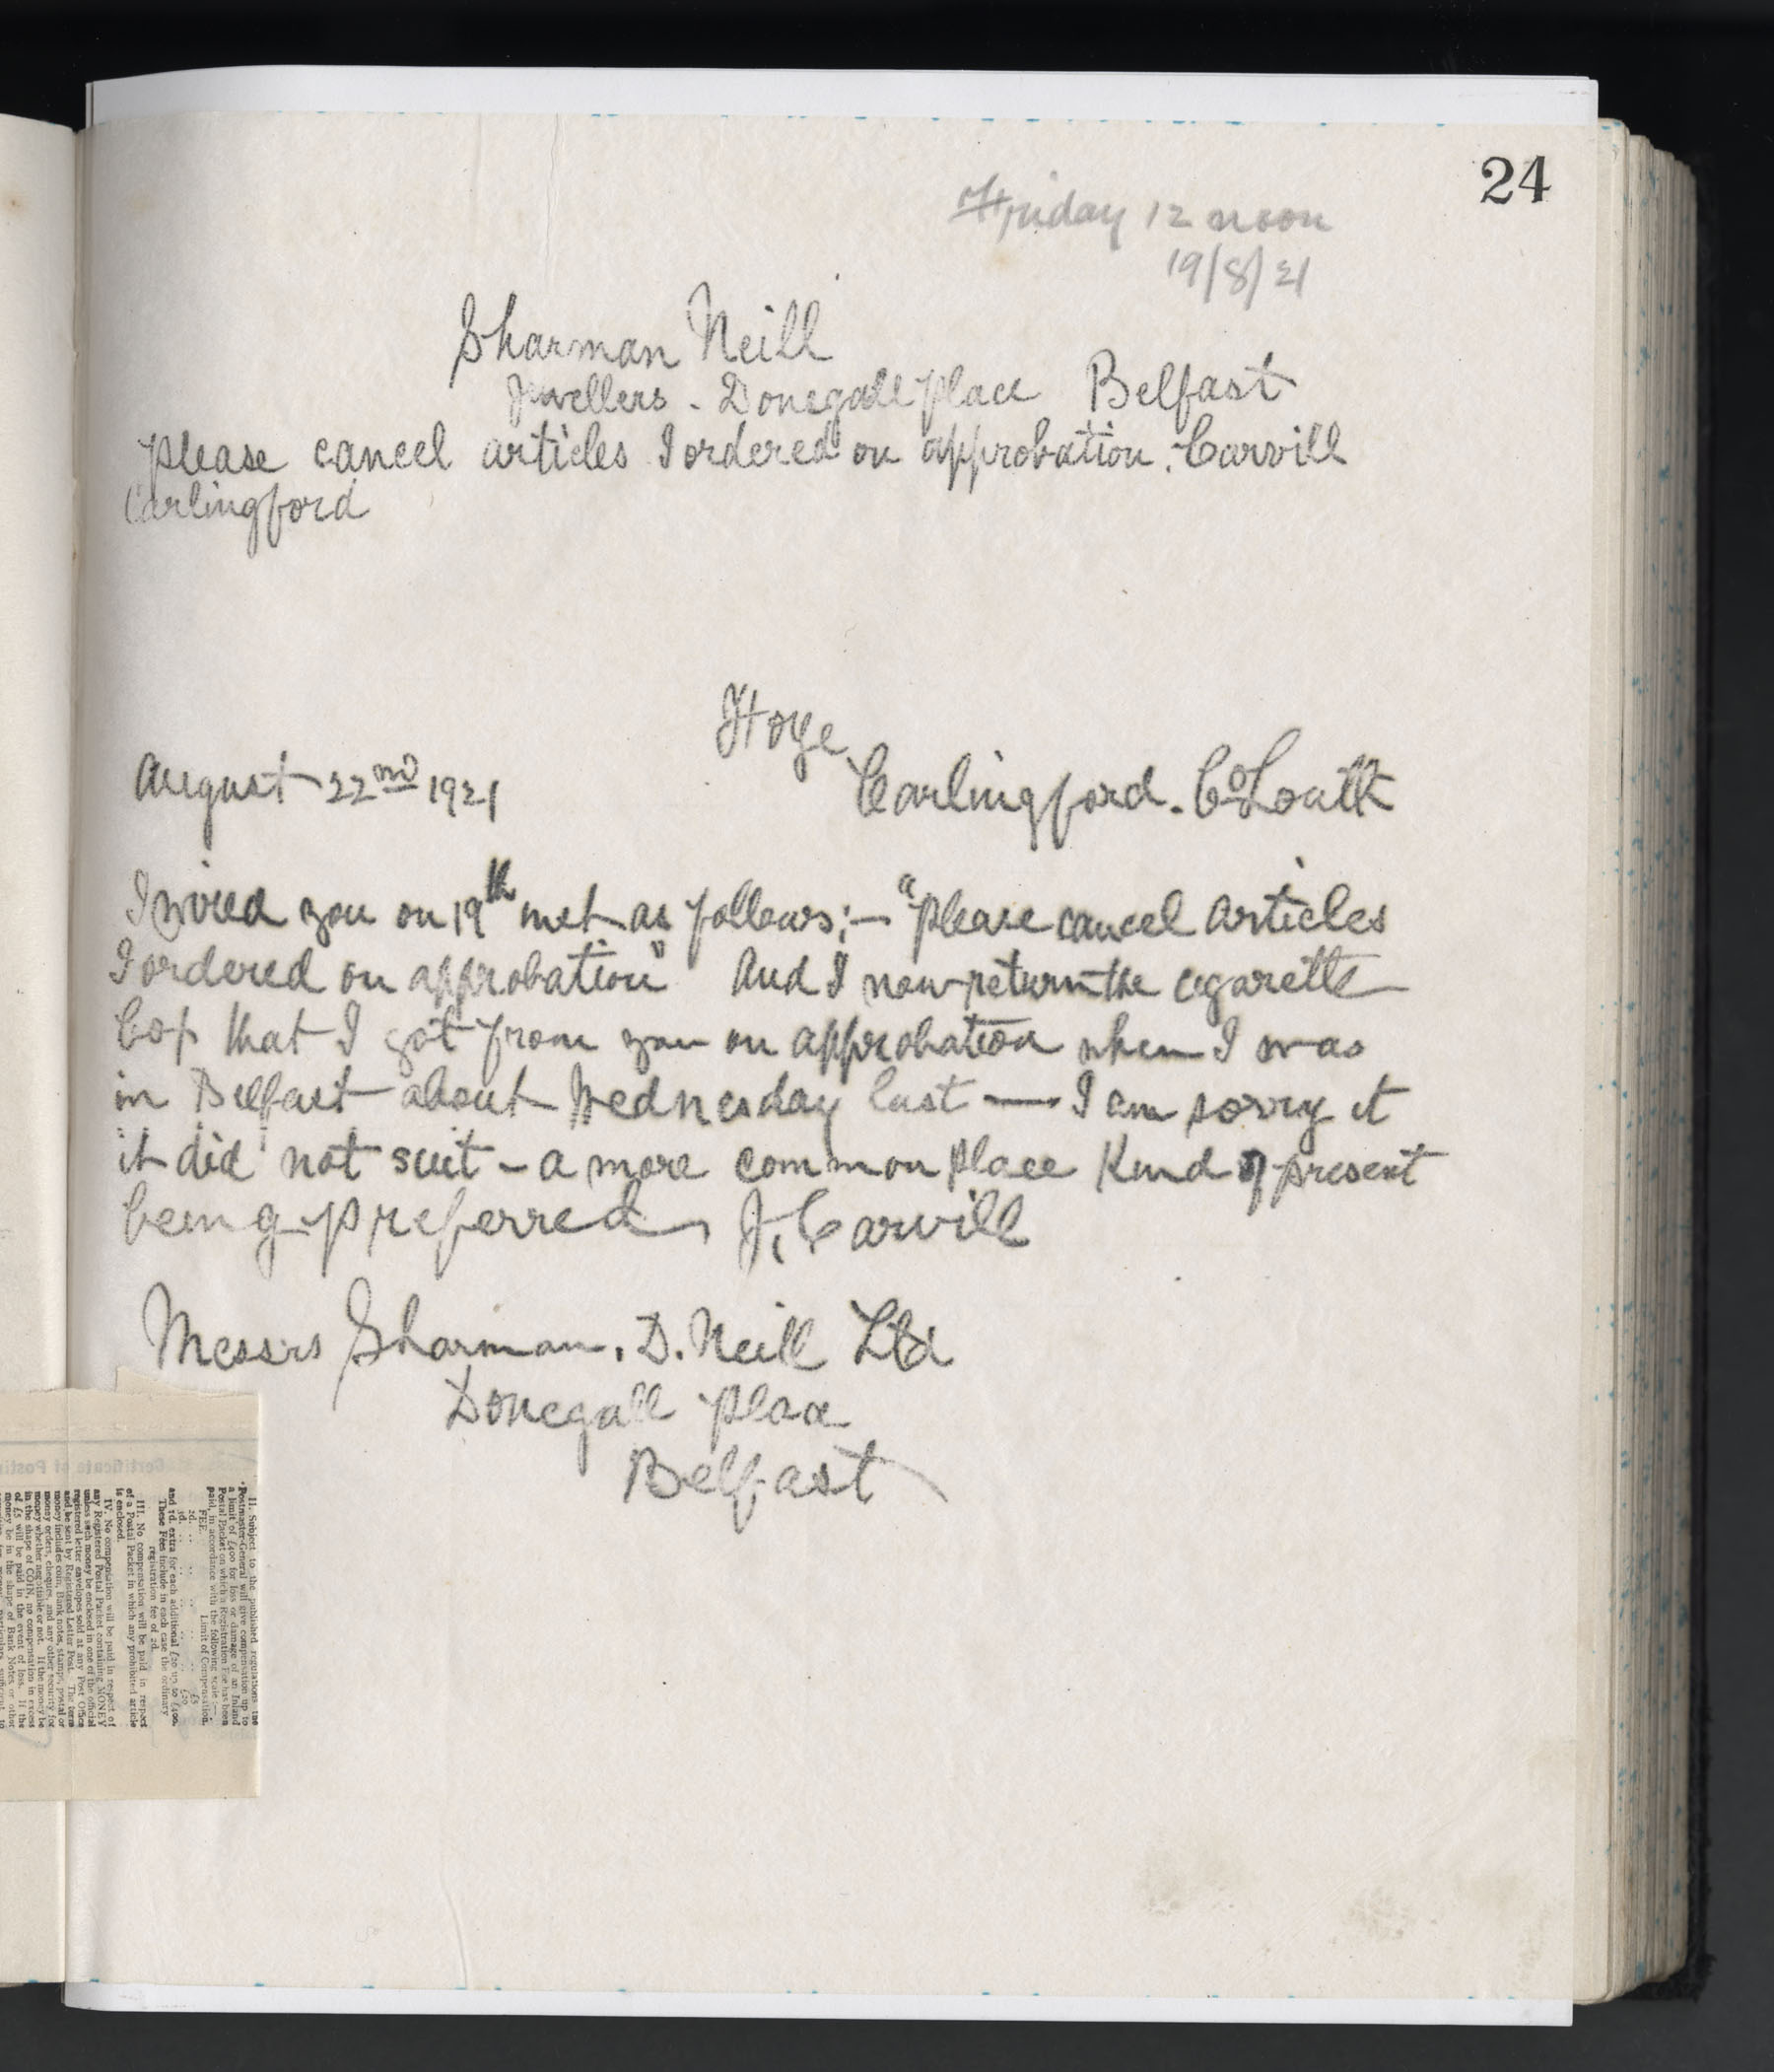 24
Friday 12 noon
19/8/21
Sharman Neill
Jewellers - Donegall place Belfast
please cancel articles I ordered on approbation. Carvill
Carlingford
Hoye
August 22nd 1921
Carlingford. Co Louth
I wired you on 19th inst as follows:— "please cancel articles
I ordered on approbation" And I now return the cigarette
box that I got from you on approbation when I was
in Belfast about Wednesday last — I am sorry it
it did not suit - a more common place kind of present
being preferred, J. Carvill
Messrs Sharman. D. Neill Ltd
Donegall place
Belfast
II. Subject to the published regulations the
Postmaster-General will give compensation up to
a limit of £400 for loss or damage of an Inland
Postal Packet on which a Registration Fee has been
paid, in accordance with the following scale:—
FEE. Limit of Compensation.
2d. £5
3d. £20
and 1d. extra for each additional £20 up to £400.
These Fees include in each case the ordinary
registration fee of 2d.
III. No compensation will be paid in respect
of a Postal Packet in which any prohibited article
is enclosed.
IV. No compensation will be paid in respect of
any Registered Postal Packet containing MONEY
unless such money be enclosed in one of the official
registered letter envelopes sold at any Post Office
and be sent by Registered Letter Post. The term
money includes coin, Bank notes, stamps, postal or
money orders, cheques, and any other security for
money whether negotiable or not. If the money be
in the shape of COIN, no compensation in excess
of £5 will be paid in the event of loss. If the
money be in the shape of Bank Notes or other